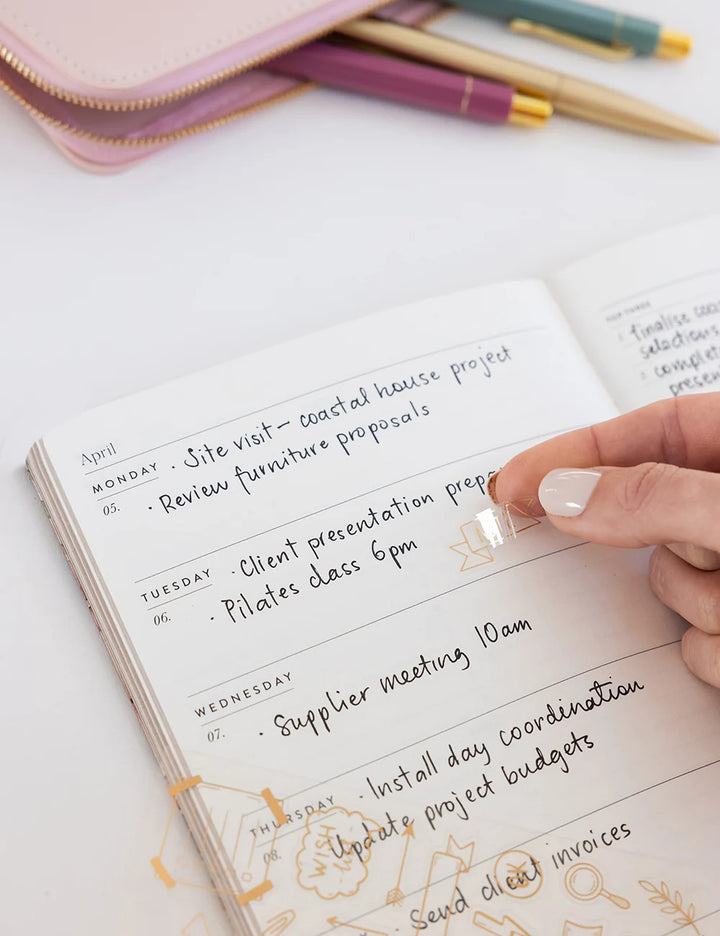 April
MONDAY
05.
· Site visit – coastal house project
· Review furniture proposals
TUESDAY
06.
· Client presentation
· Pilates class 6pm
WEDNESDAY
07.
· Supplier meeting 10am
THURSDAY
08.
· Install day coordination
Update project budgets
WISH
· Send client invoices
TOP THREE
1 finalise
selections
2 complete